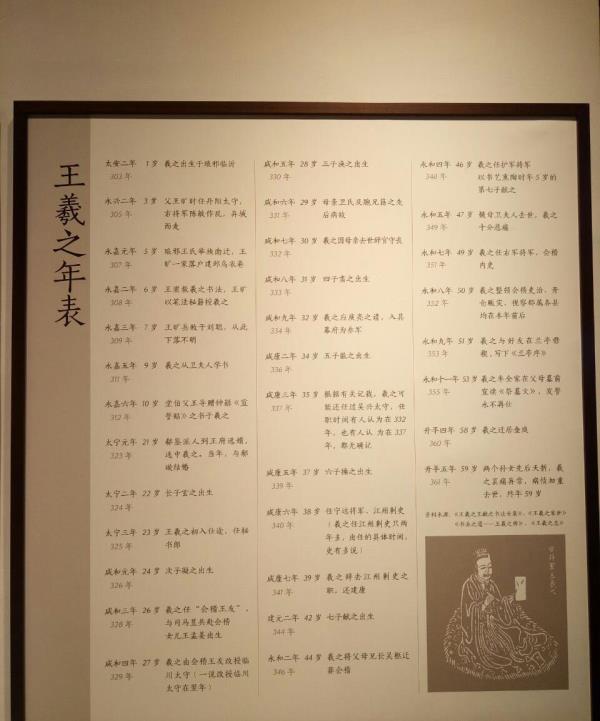 王羲之年表
太安二年 1岁 羲之出生于琅邪临沂
303年
永兴二年 3岁 父王旷时任丹阳太守，
305年 右将军陈敏作乱，弃城
而走
永嘉元年 5岁 琅邪王氏举族南迁，王
307年 旷一家落户建邺乌衣巷
永嘉二年 6岁 王羲之书法，王旷
308年 以笔法秘籍授羲之
永嘉三年 7岁 王旷兵败于刘聪，从此
309年 下落不明
永嘉五年 9岁 羲之从卫夫人学书
311年
永嘉六年 10岁 堂伯父王导赠钟繇《宣
312年 誓贴》之书于羲之
太宁元年 21岁 郗鉴派人到王府选婿，
323年 选中羲之。当年，与郗
璇结婚
太宁二年 22岁 长子玄之出生
324年
太宁三年 23岁 王羲之初入仕途，任秘
325年 书郎
咸和元年 24岁 次子凝之出生
326年
咸和三年 26岁 羲之任“会稽王友”，
328年 与司马昱共赴会稽
女儿王孟姜出生
咸和四年 27岁 羲之由会稽王友改授临
329年 川太守（一说改授临川
太守在翌年）
咸和五年 28岁 三子涣之出生
330年
咸和六年 29岁 母亲卫氏及胞兄籍之先
331年 后病故
咸和七年 30岁 羲之因母亲去世辞官守丧
332年
咸和八年 31岁 四子肃之出生
333年
咸和九年 32岁 羲之应庾亮之请，入其
334年 幕府为参军
咸康二年 34岁 五子徽之出生
336年
咸康三年 35岁 根据有关记载，羲之可
337年 能还任过吴兴太守，任
职时间有人认为在332
年，也有人认为在337
年，都无确记
咸康五年 37岁 六子操之出生
339年
咸康六年 38岁 任宁远将军、江州刺史
340年 （羲之任江州刺史只两
年多，出任的具体时间，
史有多说）
咸康七年 39岁 羲之辞去江州刺史之
341年 职，还建康
建元二年 42岁 七子献之出生
344年
永和二年 44岁 羲之将父母兄长吴柩迁
346年 葬会稽
永和四年 46岁 羲之任护军将军
348年 以书艺熏陶时年5岁的
第七子献之
永和五年 47岁 魏母卫夫人去世，羲之
349年 十分悲痛
永和七年 49岁 羲之任右军将军，会稽
351年 内史
永和八年 50岁 羲之整顿会稽吏治，开
352年 仓赈灾，视察郡属各县
均在本年前后
永和九年 51岁 羲之与好友在兰亭修
353年 禊，写下《兰亭序》
永和十一年 53岁 羲之率全家在父母墓前
355年 宣读《祭墓文》，发誓
永不再仕
升平四年 58岁 羲之迁居金庭
360年
升平五年 59岁 两个孙女先后夭折，羲
361年 之哀痛异常，病情加重
去世，终年59岁
资料来源：《王羲之王献之书法全集》、《王羲之家世》
《书圣之道——王羲之传》、《王羲之志》